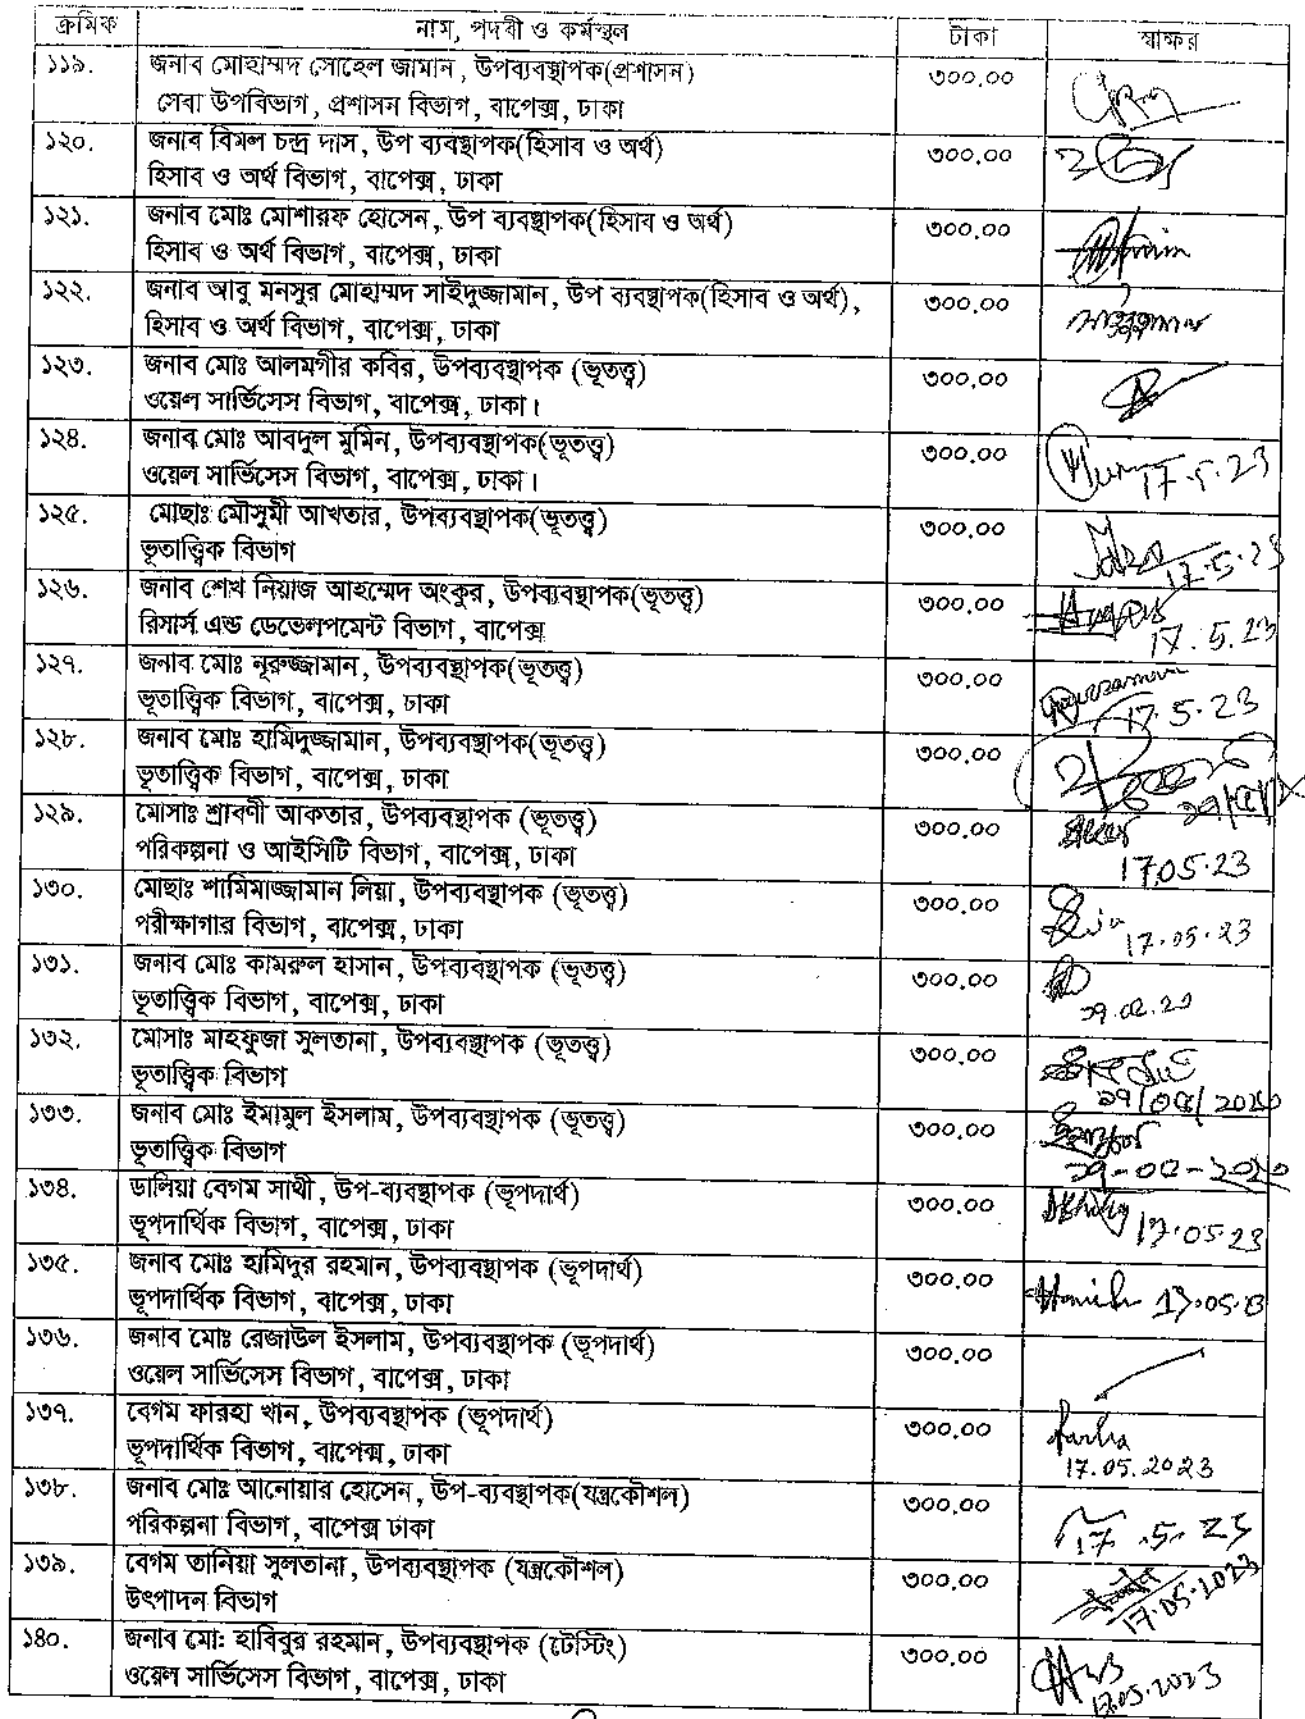 ক্রমিক নাম, পদবী ও কর্মস্থল টাকা স্বাক্ষর
১১৯. জনাব মোহাম্মদ সোহেল জামান, উপব্যবস্থাপক(প্রশাসন) ৩০০.০০
সেবা উপবিভাগ, প্রশাসন বিভাগ, বাপেক্স, ঢাকা
১২০. জনাব বিমল চন্দ্র দাস, উপ ব্যবস্থাপক(হিসাব ও অর্থ) ৩০০.০০
হিসাব ও অর্থ বিভাগ, বাপেক্স, ঢাকা
১২১. জনাব মোঃ মোশারফ হোসেন, উপ ব্যবস্থাপক(হিসাব ও অর্থ) ৩০০.০০
হিসাব ও অর্থ বিভাগ, বাপেক্স, ঢাকা
১২২. জনাব আবু মনসুর মোহাম্মদ সাইদুজ্জামান, উপ ব্যবস্থাপক(হিসাব ও অর্থ), ৩০০.০০
হিসাব ও অর্থ বিভাগ, বাপেক্স, ঢাকা
১২৩. জনাব মোঃ আলমগীর কবির, উপব্যবস্থাপক (ভূতত্ত্ব) ৩০০.০০
ওয়েল সার্ভিসেস বিভাগ, বাপেক্স, ঢাকা।
১২৪. জনাব মোঃ আবদুল মুমিন, উপব্যবস্থাপক(ভূতত্ত্ব) ৩০০.০০
ওয়েল সার্ভিসেস বিভাগ, বাপেক্স, ঢাকা। 17.5.23
১২৫. মোছাঃ মৌসুমী আখতার, উপব্যবস্থাপক(ভূতত্ত্ব) ৩০০.০০
ভূতাত্ত্বিক বিভাগ 17.5.23
১২৬. জনাব শেখ নিয়াজ আহম্মেদ অংকুর, উপব্যবস্থাপক(ভূতত্ত্ব) ৩০০.০০
রিসার্স এন্ড ডেভেলপমেন্ট বিভাগ, বাপেক্স 17.5.23
১২৭. জনাব মোঃ নূরুজ্জামান, উপব্যবস্থাপক(ভূতত্ত্ব) ৩০০.০০
ভূতাত্ত্বিক বিভাগ, বাপেক্স, ঢাকা 17.5.23
১২৮. জনাব মোঃ হামিদুজ্জামান, উপব্যবস্থাপক(ভূতত্ত্ব) ৩০০.০০
ভূতাত্ত্বিক বিভাগ, বাপেক্স, ঢাকা
১২৯. মোসাঃ শ্রাবণী আকতার, উপব্যবস্থাপক (ভূতত্ত্ব) ৩০০.০০
পরিকল্পনা ও আইসিটি বিভাগ, বাপেক্স, ঢাকা 17.05.23
১৩০. মোছাঃ শামিমাজ্জামান লিয়া, উপব্যবস্থাপক (ভূতত্ত্ব) ৩০০.০০
পরীক্ষাগার বিভাগ, বাপেক্স, ঢাকা 17.05.23
১৩১. জনাব মোঃ কামরুল হাসান, উপব্যবস্থাপক (ভূতত্ত্ব) ৩০০.০০
ভূতাত্ত্বিক বিভাগ, বাপেক্স, ঢাকা ১৭.০৫.২৩
১৩২. মোসাঃ মাহফুজা সুলতানা, উপব্যবস্থাপক (ভূতত্ত্ব) ৩০০.০০
ভূতাত্ত্বিক বিভাগ ১৭/০৫/২০২৩
১৩৩. জনাব মোঃ ইমামুল ইসলাম, উপব্যবস্থাপক (ভূতত্ত্ব) ৩০০.০০
ভূতাত্ত্বিক বিভাগ ১৭-০৫-২০২৩
১৩৪. ডালিয়া বেগম সাথী, উপ-ব্যবস্থাপক (ভূপদার্থ) ৩০০.০০
ভূপদার্থিক বিভাগ, বাপেক্স, ঢাকা 17.05.23
১৩৫. জনাব মোঃ হামিদুর রহমান, উপব্যবস্থাপক (ভূপদার্থ) ৩০০.০০
ভূপদার্থিক বিভাগ, বাপেক্স, ঢাকা
১৩৬. জনাব মোঃ রেজাউল ইসলাম, উপব্যবস্থাপক (ভূপদার্থ) ৩০০.০০
ওয়েল সার্ভিসেস বিভাগ, বাপেক্স, ঢাকা
১৩৭. বেগম ফারহা খান, উপব্যবস্থাপক (ভূপদার্থ) ৩০০.০০ Farha
ভূপদার্থিক বিভাগ, বাপেক্স, ঢাকা 17.05.2023
১৩৮. জনাব মোঃ আনোয়ার হোসেন, উপ-ব্যবস্থাপক(যন্ত্রকৌশল) ৩০০.০০
পরিকল্পনা বিভাগ, বাপেক্স ঢাকা 17.5.23
১৩৯. বেগম তানিয়া সুলতানা, উপব্যবস্থাপক (যন্ত্রকৌশল) ৩০০.০০
উৎপাদন বিভাগ 17.05.2023
১৪০. জনাব মো: হাবিবুর রহমান, উপব্যবস্থাপক (টেস্টিং) ৩০০.০০
ওয়েল সার্ভিসেস বিভাগ, বাপেক্স, ঢাকা 17.05.2023